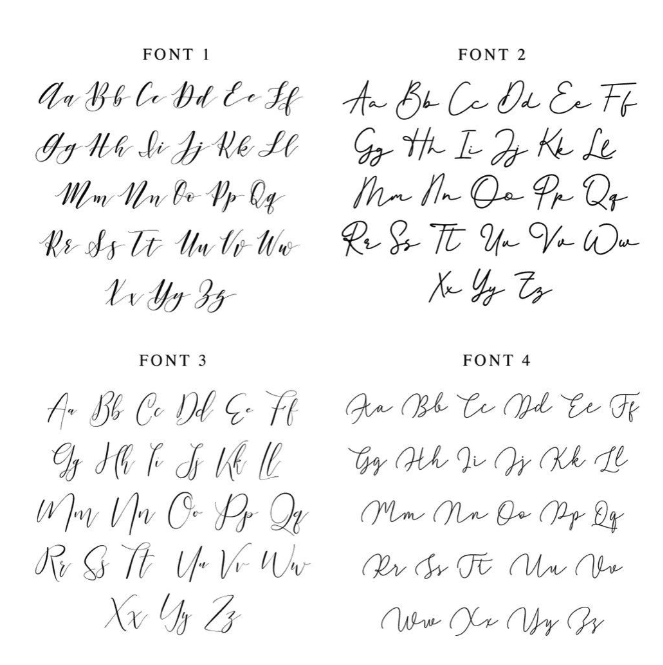 FONT 1
Aa Bb Cc Dd Ee Ff
Gg Hh Ii Jj Kk Ll
Mm Nn Oo Pp Qq
Rr Ss Tt Uu Vv Ww
Xx Yy Zz
FONT 2
Aa Bb Cc Dd Ee Ff
Gg Hh Ii Jj Kk Ll
Mm Nn Oo Pp Qq
Rr Ss Tt Uu Vv Ww
Xx Yy Zz
FONT 3
Aa Bb Cc Dd Ee Ff
Gg Hh Ii Jj Kk Ll
Mm Nn Oo Pp Qq
Rr Ss Tt Uu Vv Ww
Xx Yy Zz
FONT 4
Aa Bb Cc Dd Ee Ff
Gg Hh Ii Jj Kk Ll
Mm Nn Oo Pp Qq
Rr Ss Tt Uu Vv
Ww Xx Yy Zz